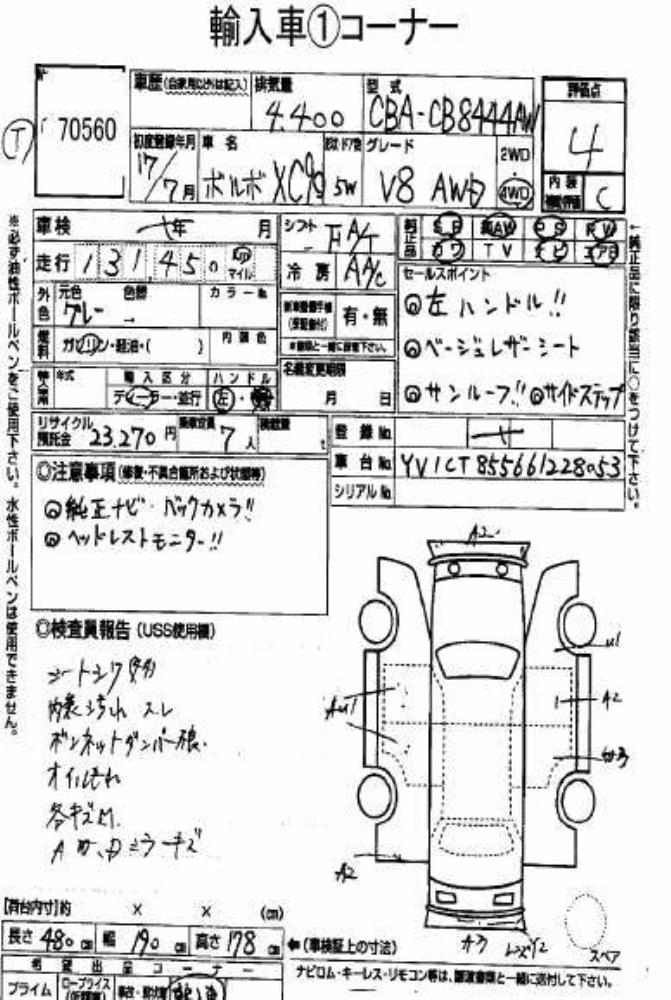 輸入車①コーナー
70560
車歴(自家用以外は記入)
排気量
4.400
型式
CBA-CB8444AW
評価点
4
初度登録年月
17/7月
車名
ボルボ XC90
5W
グレード
V8 AWD
2WD
4WD
内装
C
車検
年 月
シフト
FA/T
走行
131,450
マイル
冷房
AA/C
純正品
SR AW PS PW
カワ TV ナビ エアB
外色
元色 色替
グレー →
カラーNo.
有・無
セールスポイント
◎左ハンドル!!
◎ベージュレザーシート
◎サンルーフ!! ◎サイドステップ
燃料
ガソリン・軽油・( )
内装色
名義変更期限
月 日
年式
輸入区分
ディーラー・並行
ハンドル
左・
リサイクル預託金
23,270円
乗車定員
7人
登録No.
車台No.
YV1CT855661228053
シリアルNo.
◎注意事項(修復・不具合箇所および状態等)
◎純正ナビ・バックカメラ!!
◎ヘッドレストモニター!!
◎検査員報告(USS使用欄)
シートシワ
内装汚れ スレ
ボンネットダンパー
オイルもれ
ミラーキズ
A2
U1
AU1
A2
A2
A3
スペア
[荷台内寸]約 × × (cm)
長さ 480 cm 幅 190 cm 高さ 178 cm
←(車検証上の寸法)
希望出品コーナー
プライム
ロープライス
ナビロム・キーレス・リモコン等は、譲渡書類と一緒に送付して下さい。
※必ず油性ボールペンをご使用下さい。水性ボールペンは使用できません。
←純正品に限り該当に○をつけて下さい。